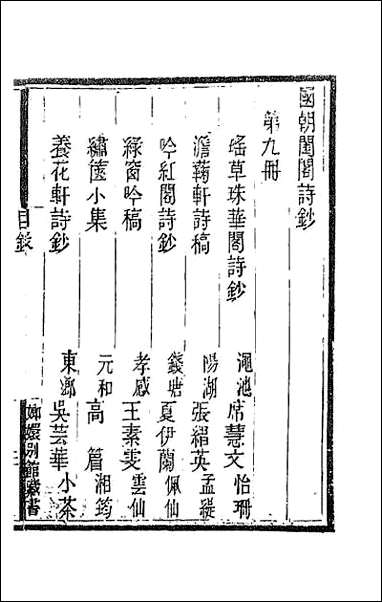 國朝閨閣詩鈔
第九冊
瑤草珠華閣詩鈔 澠池 席慧文 怡珊
澹菊軒詩稿 陽湖 張䌌英 孟緹
吟紅閣詩鈔 錢塘 夏伊蘭 佩仙
綠窗吟稿 孝感 王素雯 雲仙
繡篋小集 元和 高篃 湘筠
養花軒詩鈔 東鄉 吳芸華 小茶
目錄
嫏嬛別館藏書